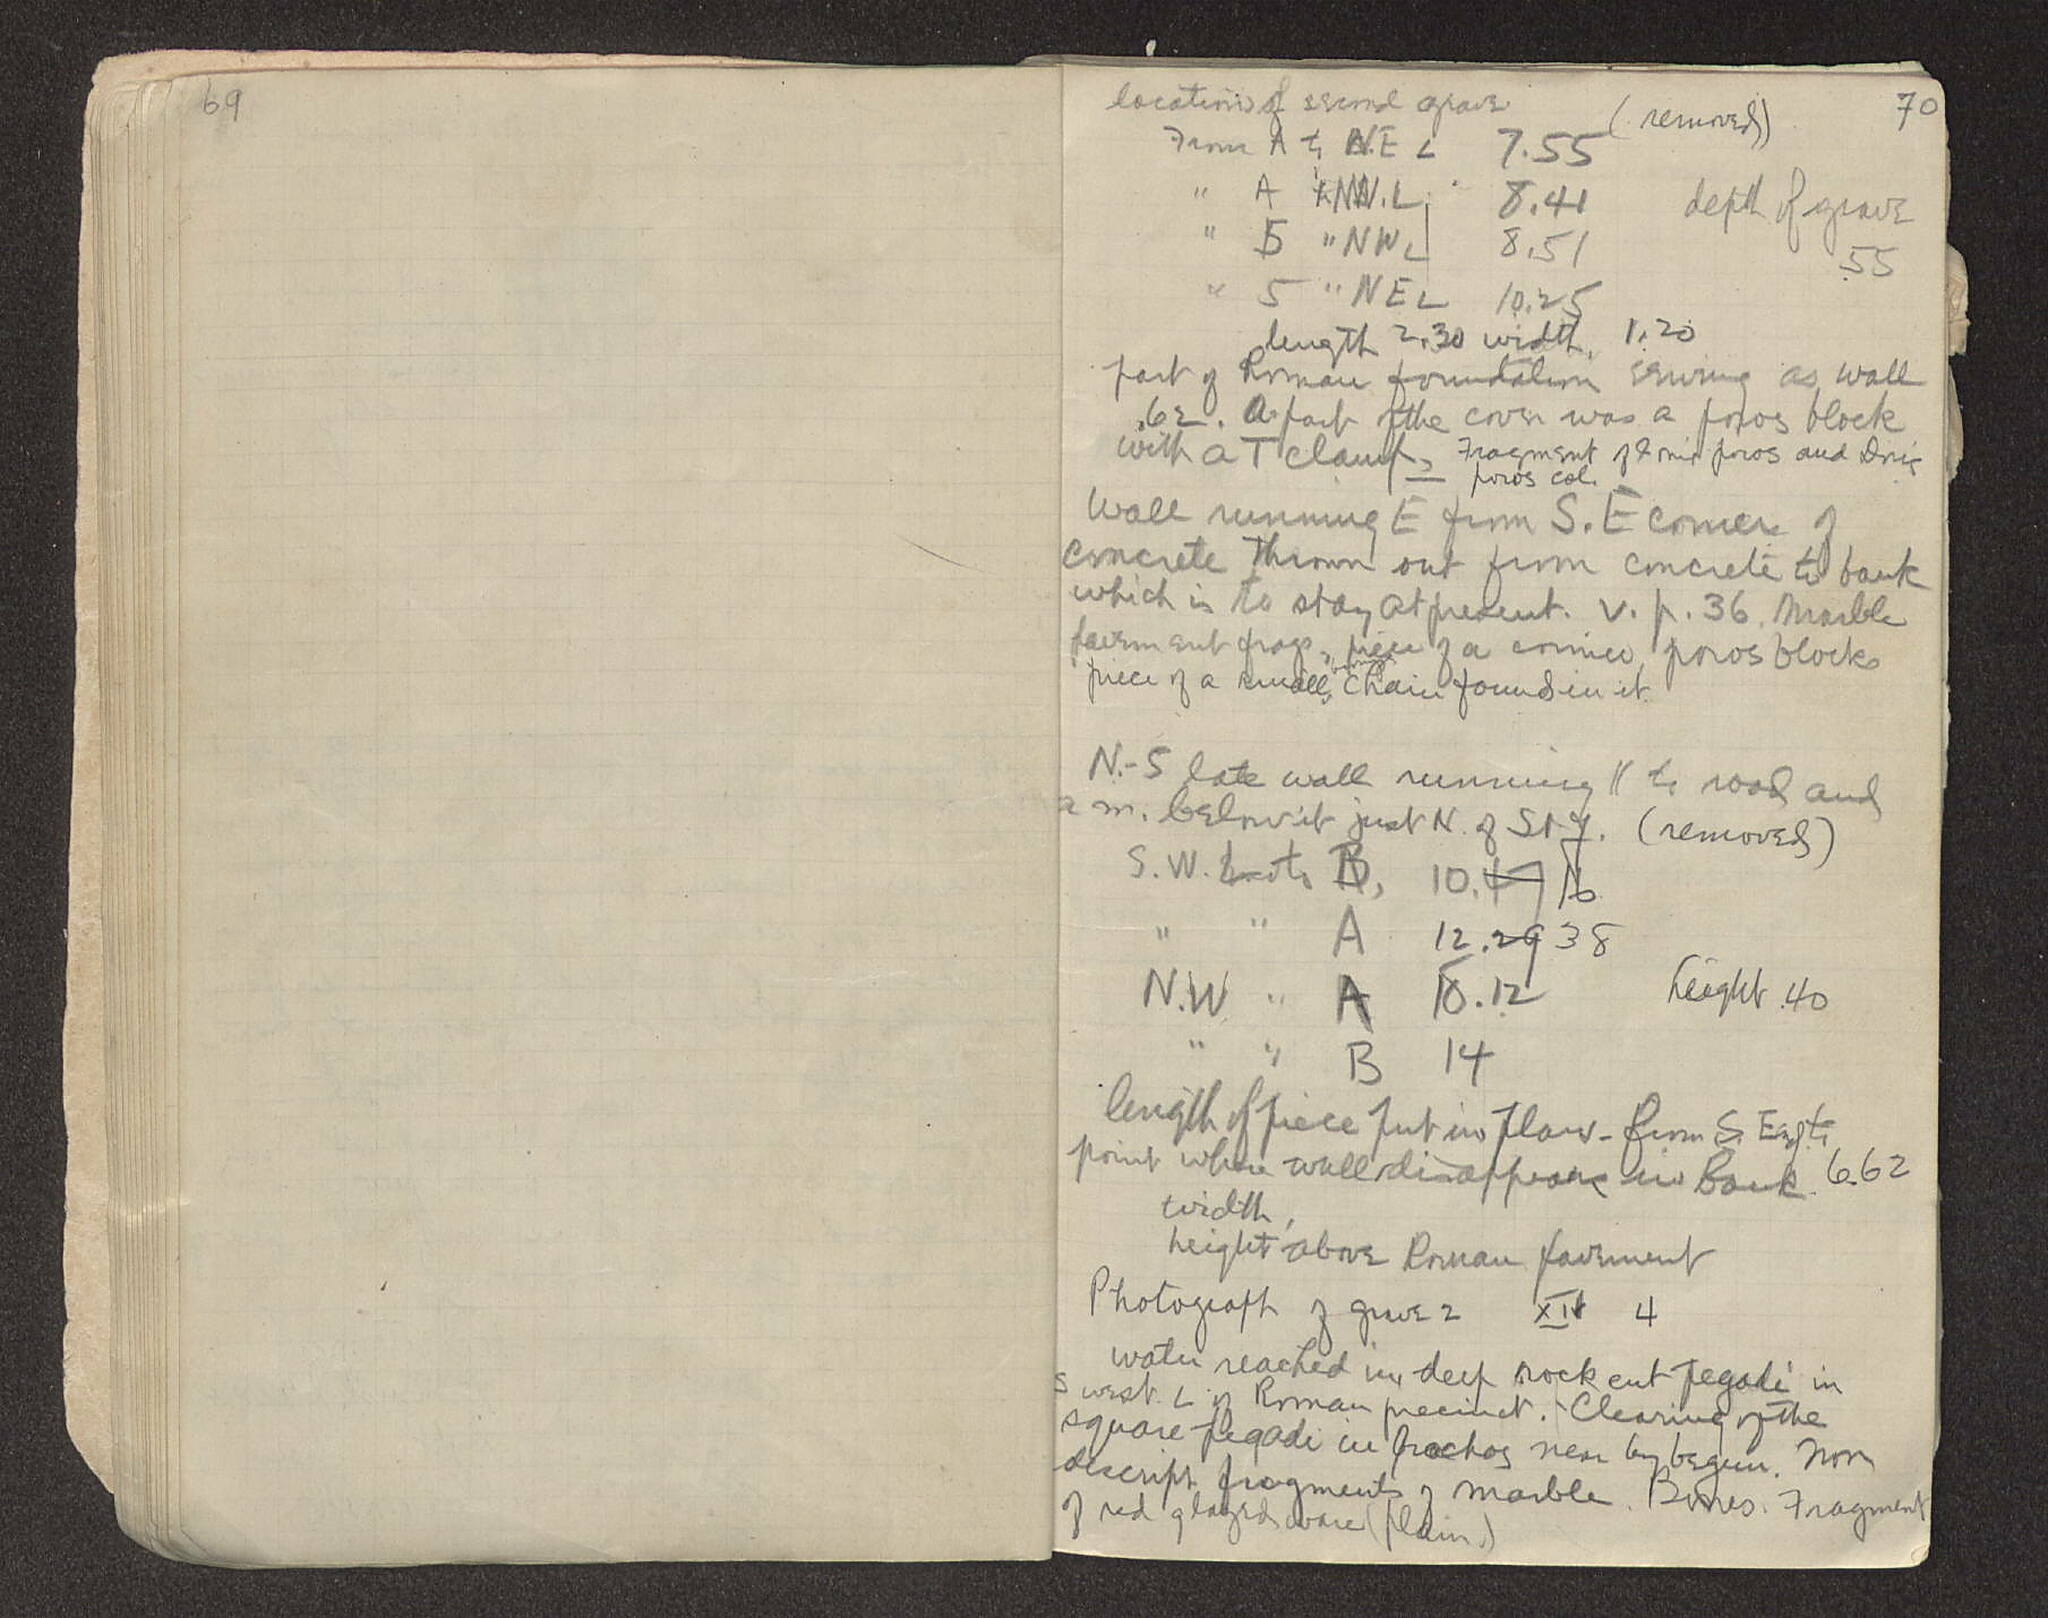 69
70
location of second grave (removed)
From A to N.E L 7.55
" A to N.W. L 8.41 depth of grave
" 5 " NW L 8.51 .55
" 5 " NE L 10.25
length 2.30 width, 1.20
part of Roman foundation serving as wall
.62. A part of the cover was a poros block
with a T clamp, Fragment of Ionic poros and Doric
poros col.
Wall running E from S.E corner of
concrete thrown out from concrete to bank
which is to stay at present. v. p. 36. Marble
pavement frags, piece of a cornice, poros blocks
piece of a small chain found in it.
N.-S late wall running || to road and
a m. below it just N. of St 7. (removed)
S.W. to B, 10.17 16
" " A 12.29 38
N.W " A 10.12 height .40
" " B 14
length of piece put in plan - from S. End to
point where wall disappears in Bank. 6.62
width,
height above Roman pavement
Photograph of grave 2 XIV 4
water reached in deep rock cut pegadi in
s west L of Roman precinct. Clearing of the
square pegadi in brachos near by begun. Non
descript fragments of marble. Bones. Fragment
of red glazed ware (plain.)